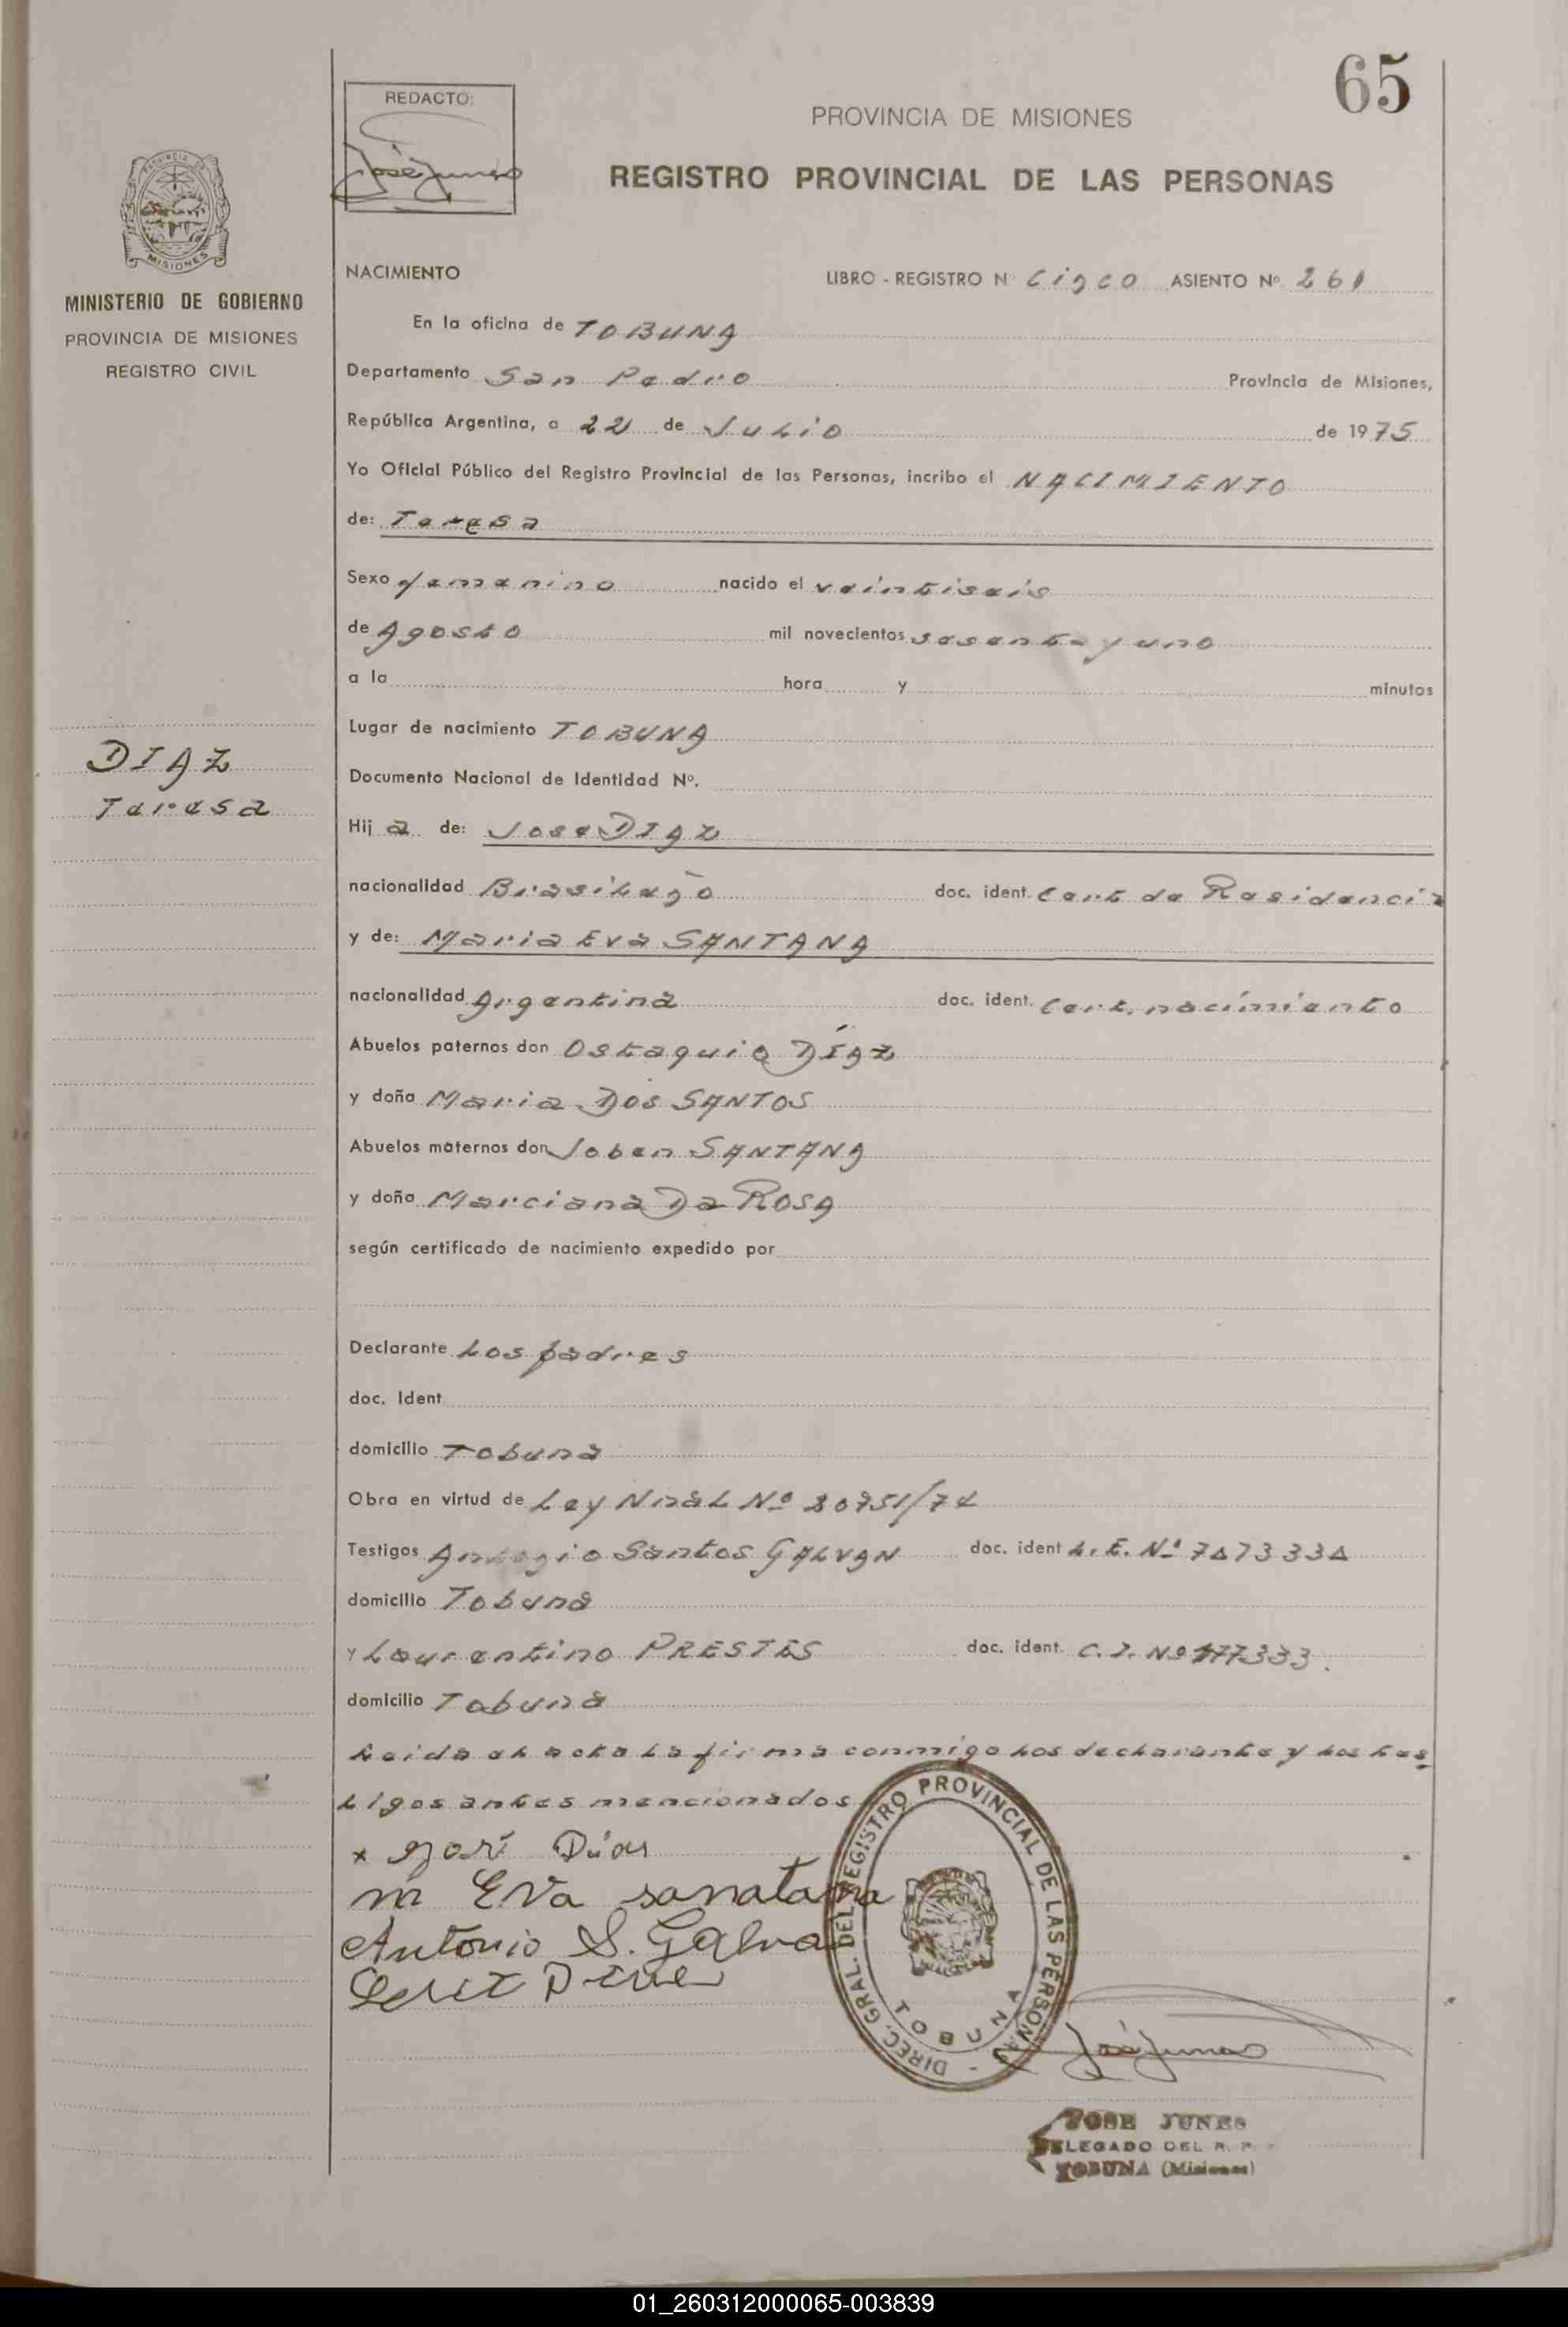 65
REDACTO:
PROVINCIA DE MISIONES
REGISTRO PROVINCIAL DE LAS PERSONAS
MISIONES
MINISTERIO DE GOBIERNO
PROVINCIA DE MISIONES
REGISTRO CIVIL
NACIMIENTO LIBRO - REGISTRO N Cinco ASIENTO Nº 261
En la oficina de TOBUNA
Departamento San Pedro Provincia de Misiones,
República Argentina, a 22 de Julio de 1975
Yo Oficial Público del Registro Provincial de las Personas, incribo el NACIMIENTO
de: Teresa
Sexo femenino nacido el veintiseis
de Agosto mil novecientos sesenta y uno
a la hora y minutos
Lugar de nacimiento TOBUNA
DIAZ
Teresa
Documento Nacional de Identidad Nº.
Hij a de: Jose DIAZ
nacionalidad Brasileño doc. ident. Cert de Residencia
y de: Maria Eva SANTANA
nacionalidad Argentina doc. ident. Cert. nacimiento
Abuelos paternos don Ostaquio DÍAZ
y doña Maria DOS SANTOS
Abuelos maternos don Joben SANTANA
y doña Marciana Da ROSA
según certificado de nacimiento expedido por
Declarante Los padres
doc. Ident
domicilio Tobuna
Obra en virtud de Ley Nnal Nº 20751/74
Testigos Antonio Santos GALVAN doc. ident L.E. Nº 7473334
domicilio Tobuna
y Laurentino PRESTES doc. ident. C.I. Nº 177333.
domicilio Tobuna
Leida el acta la firma conmigo los declarante y los tes
tigos antes mencionados
x José Días
m Eva sanatana
Antonio S. Galva
DIREC. GRAL. DEL REGISTRO PROVINCIAL DE LAS PERSONAS -
TOBUNA
José Junes
JOSE JUNES
DELEGADO DEL R. P.
TOBUNA (Misiones)
01_260312000065-003839